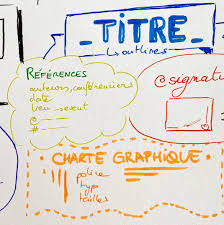 TITRE
outlines
RÉFÉRENCES
auteurs, conférenciers
date
lieu - event
@
#
@signatu
CHARTE GRAPHIQUE
police
typo
tailles